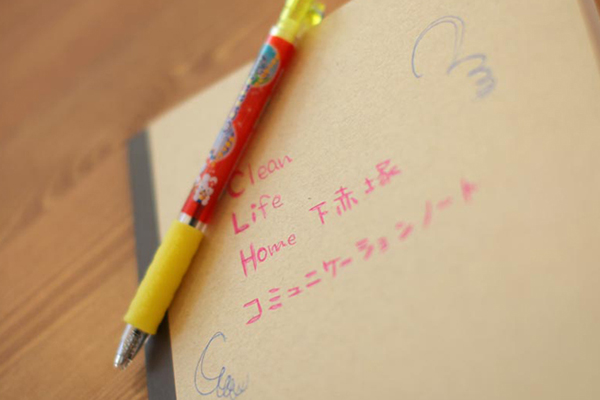 Clean
Life
Home 下赤塚
コミュニケーションノート